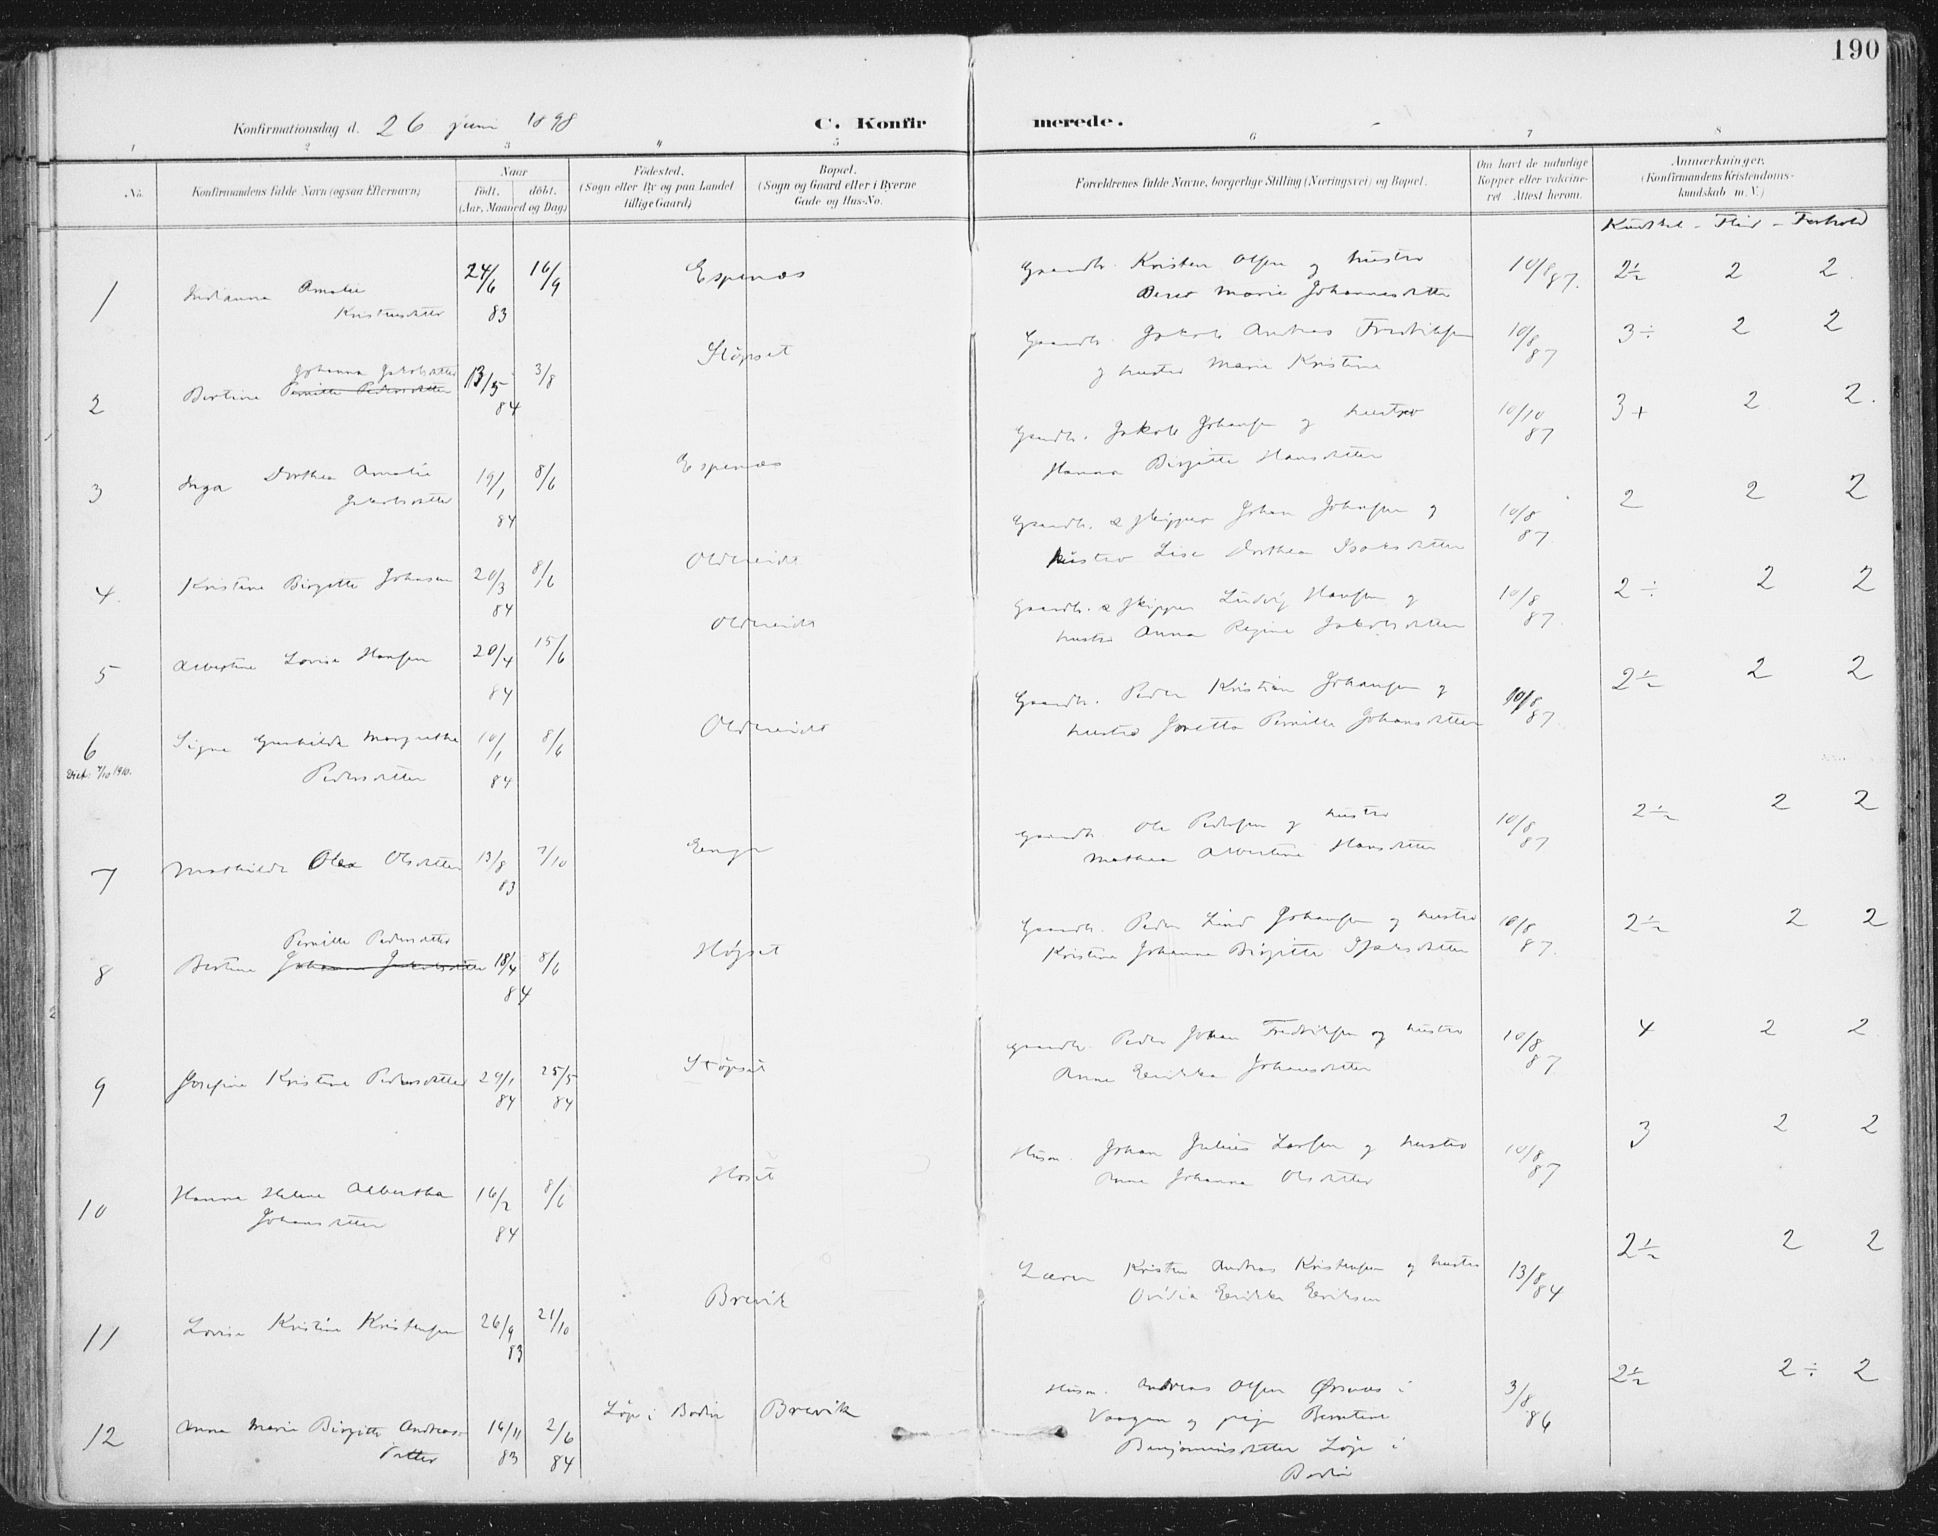 190
Konfirmationsdag d. 26 juni 1898
C. Konfirmerede.
1 2 3 4 5 6 7 8
No.
Konfirmandens fulde Navn (ogsaa Efternavn)
Naar
födt. döbt.
(Aar, Maaned og Dag)
Födested.
(Sogn eller By og paa Landet
tillige Gaard)
Bopæl.
(Sogn og Gaard eller i Byerne
Gade og Hus-No.
Forældrenes fulde Navne, borgerlige Stilling (Næringsvei) og Bopæl.
Om havt de naturlige
Kopper eller vaccine-
ret Attest herom.
Anmærkninger.
(Konfirmandens Kristendoms-
kundskab m. V.)
Kundskab - Flid - Forhold
1 Amalie Kristensdatter 24/6 83 16/9 Espenæs
Gaardb. Kristen Olsen og hustro
Marie Johannesdatter 10/8 87. 2½ 2 2.
2 Bertine Pernille Pedersdatter 13/5 84 3/8
Johanna Jakobsdatter
Gaardb. Jakob Andreas Fredriksen
og hustro Marie Kristine 10/8 87 3÷ 2 2
3 Inga Dorthea Amalie
Jakobsdatter 19/1 84 8/6 Espenæs
Gaardb. Jakob Johansen og hustro
Hanna Birgitte Hansdatter 10/10 87 3+ 2 2.
4. Kristine Birgitte Johansen 20/3 84 8/6 Oldereidet
Gaardb. & skipper Johan Johansen og
hustro Lise Dorthea Isaksdatter 10/8 87. 2 2 2
5 Albertine Lovise Hansen 20/4 84 15/6 Oldereidet
Gaardb. & skipper Ludvig Hansen og
hustro Anna Regine Jakobsdatter 10/8 87. 2÷ 2 2
6 Signe Gunhilde Margrethe
Pedersdatter 10/1 84 8/6 Oldereidet
Gaardb. Peder Kristian Johansen og
hustro Pernille Johansdatter 10/8 87. 2½ 2 2
7 Mathilde Olea Olsdatter 13/8 83 7/10
Gaardb. Ole Pedersen og hustro
Mathea Albertine Hansdatter 10/8 87 2½ 2 2
8 Bertine Johanna Jakobsdatter 18/4 84 8/6
Pernille Pedersdatter
Gaardb. Peder Lind Johansen og hustro
Kristine Johanna Birgitte Isaksdatter 10/8 87. 2½ 2 2
9 Josefine Kristine Pedersdatter 29/1 84 25/5 84
Gaardb. Peder Johan Fredriksen og hustro
Anne Johansdatter 10/8 87 4 2 2
10 Hanna Helene Albertha
Johansdatter 16/2 84 8/6
Husm. Johan Julius Larsen og hustro
Anne Johanna Olsdatter 10/8 87 3 2 2
11 Lovise Kristine Kristensen 26/9 83 21/10 Brevik
Lærer Kristen Andreas Kristensen og hustro
Ovidia Eriksen 13/8 84 2½ 2 2
12 Anna Marie Birgitte Andreas-
datter 16/11 83 2/6 84 Löp i Bodin Brevik
Husm. Andreas Olsen i
Vaagan og pige Berntine
Benjaminsdatter Löp i
Bodin 3/8 86 2½ 2÷ 2